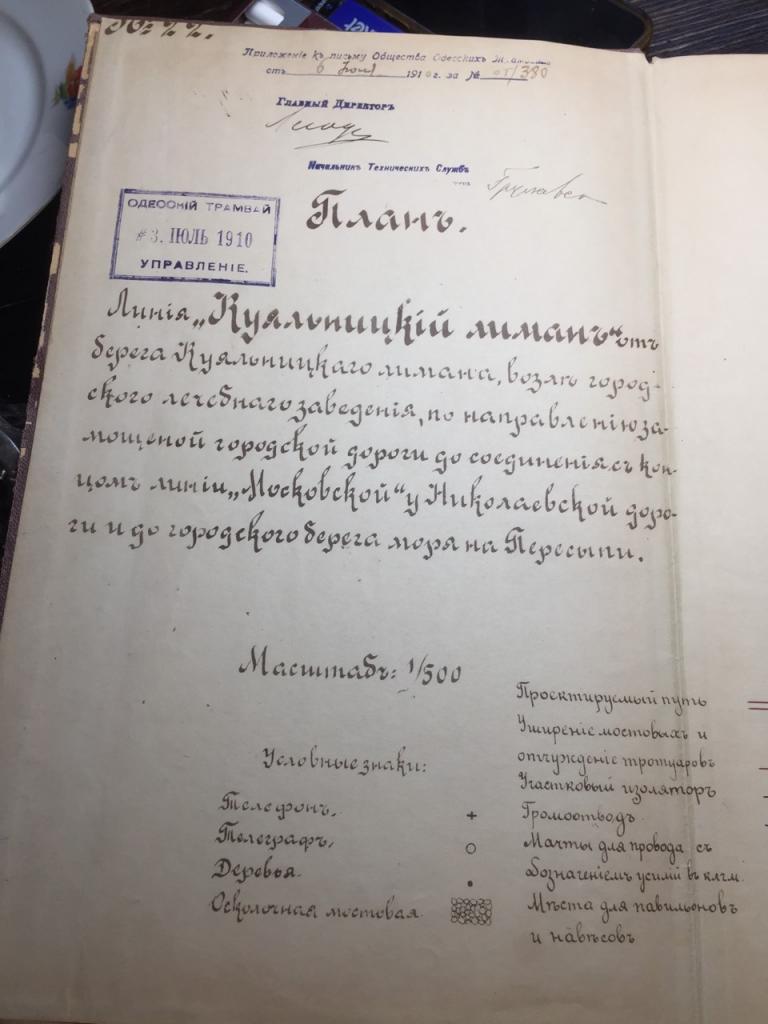 № 22.
Приложеніе къ письму Общества Одесскихъ
отъ 6 Іюля 1910 г. за № /380
Главный Директоръ
Начальникъ Техническихъ Службъ
ОДЕССКІЙ ТРАМВАЙ
#3. ІЮЛЬ 1910
УПРАВЛЕНІЕ.
Планъ.
Линія „Куяльницкій лиманъ“ отъ
берега Куяльницкаго лимана, возлѣ город-
ского лечебнаго заведенія, по направленію за-
мощеной городской дороги до соединенія съ кон-
цомъ линіи „Московской“ у Николаевской доро-
ги и до городского берега моря на Пересыпи.
Масштабъ: 1/500
Условные знаки:
Телефонъ.
Телеграфъ.
Деревья.
Осколочная мостовая.
Проектируемый путь
Уширеніе мостовыхъ и
отчужденіе тротуаровъ
Участковый изоляторъ
Громоотводъ
Мачты для провода съ
бозначеніемъ усилій въ клгм.
Мѣста для павильоновъ
и навѣсовъ